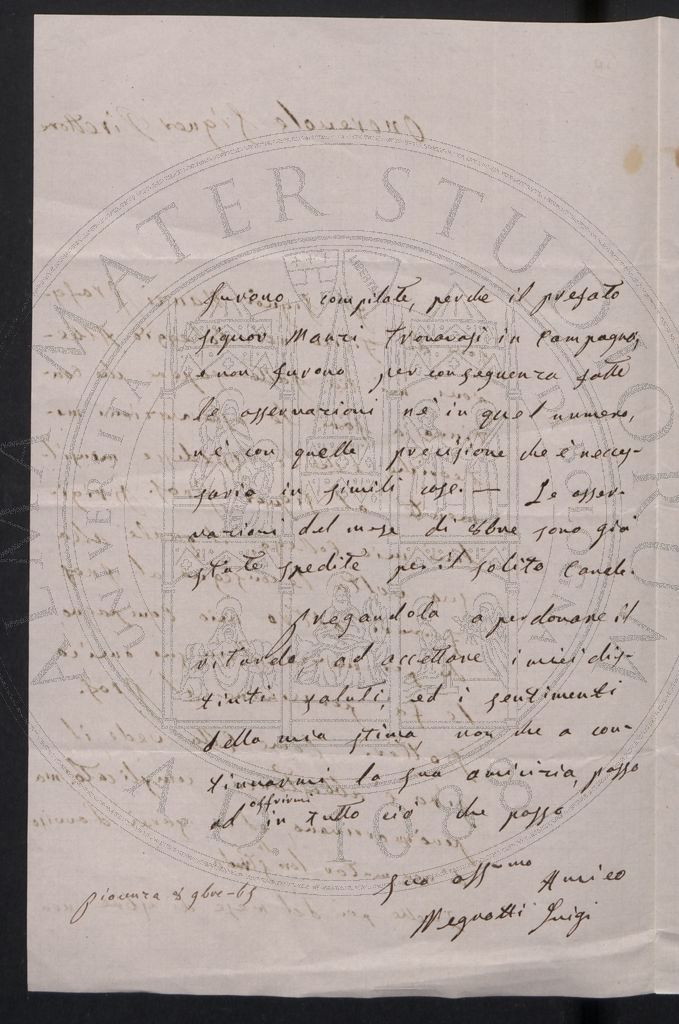 furono compilate, perche il prefato
signor Manzi trovavasi in Campagna,
e non furono per conseguenza fatte
le osservazioni nè in quel numero,
nè con quella precisione che è neces-
saria in simili cose. — Le osser-
vazioni del mese di 8bre sono già
state spedite per il solito Canale.
Pregandola a perdonare il
ritardo, ad accettare i miei dis-
tinti saluti, ed i sentimenti
della mia stima, non che a con-
tinuarmi la sua amicizia, passo
ad offrirmi in tutto ciò che posso
Suo Affmo Amico
Luigi
Piacenza 8 9bre-65
ALMA MATER STUDIORUM
A.D. 1088